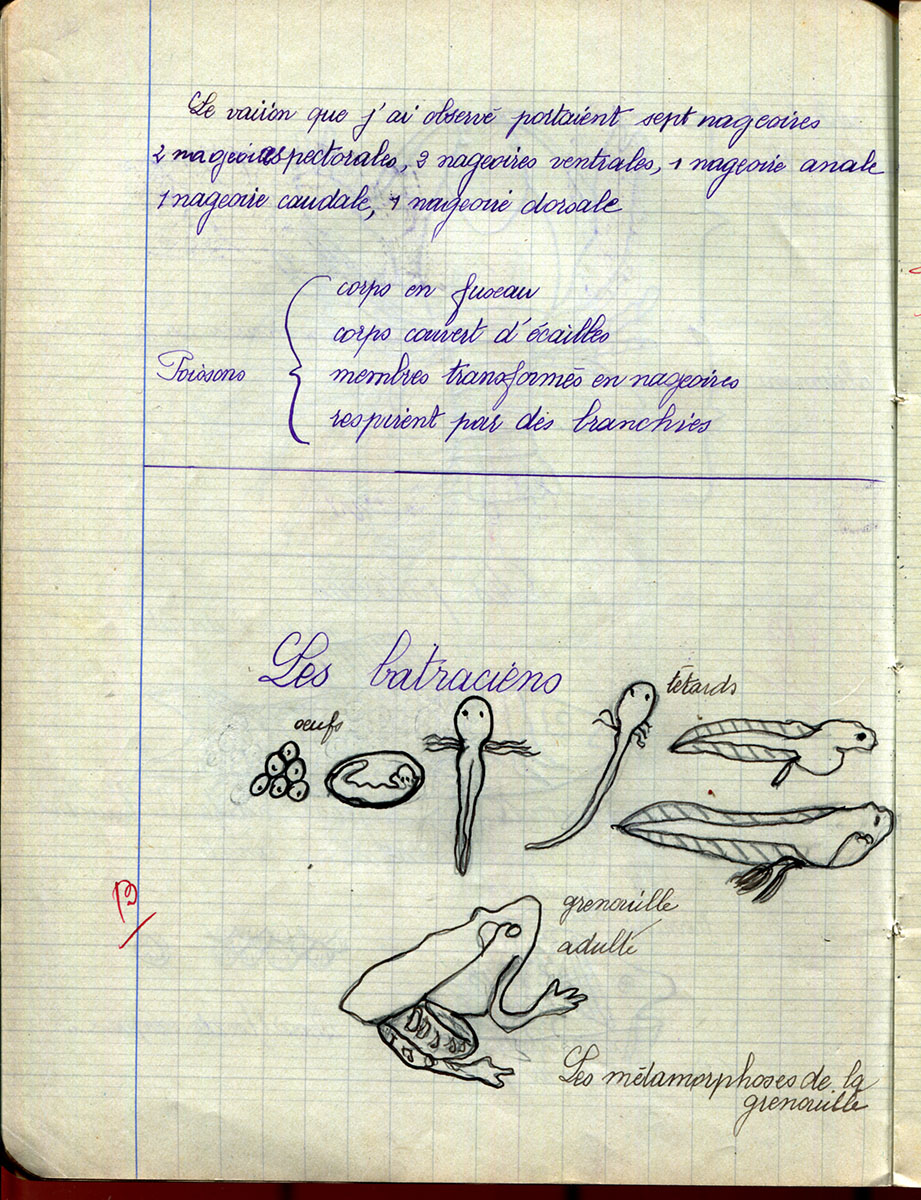 Le vaiion que j'ai observé portaient sept nageoires
2 nageoires pectorales, 2 nageoires ventrales, 1 nageoire anale
1 nageoire caudale, 1 nageoire dorsale
corps en fuseau
corps couvert d'écailles
Poissons
membres transformés en nageoires
respirent par des branchies
Les batraciens
têtards
oeufs
B
grenouille
adulte
Les métamorphoses de la
grenouille